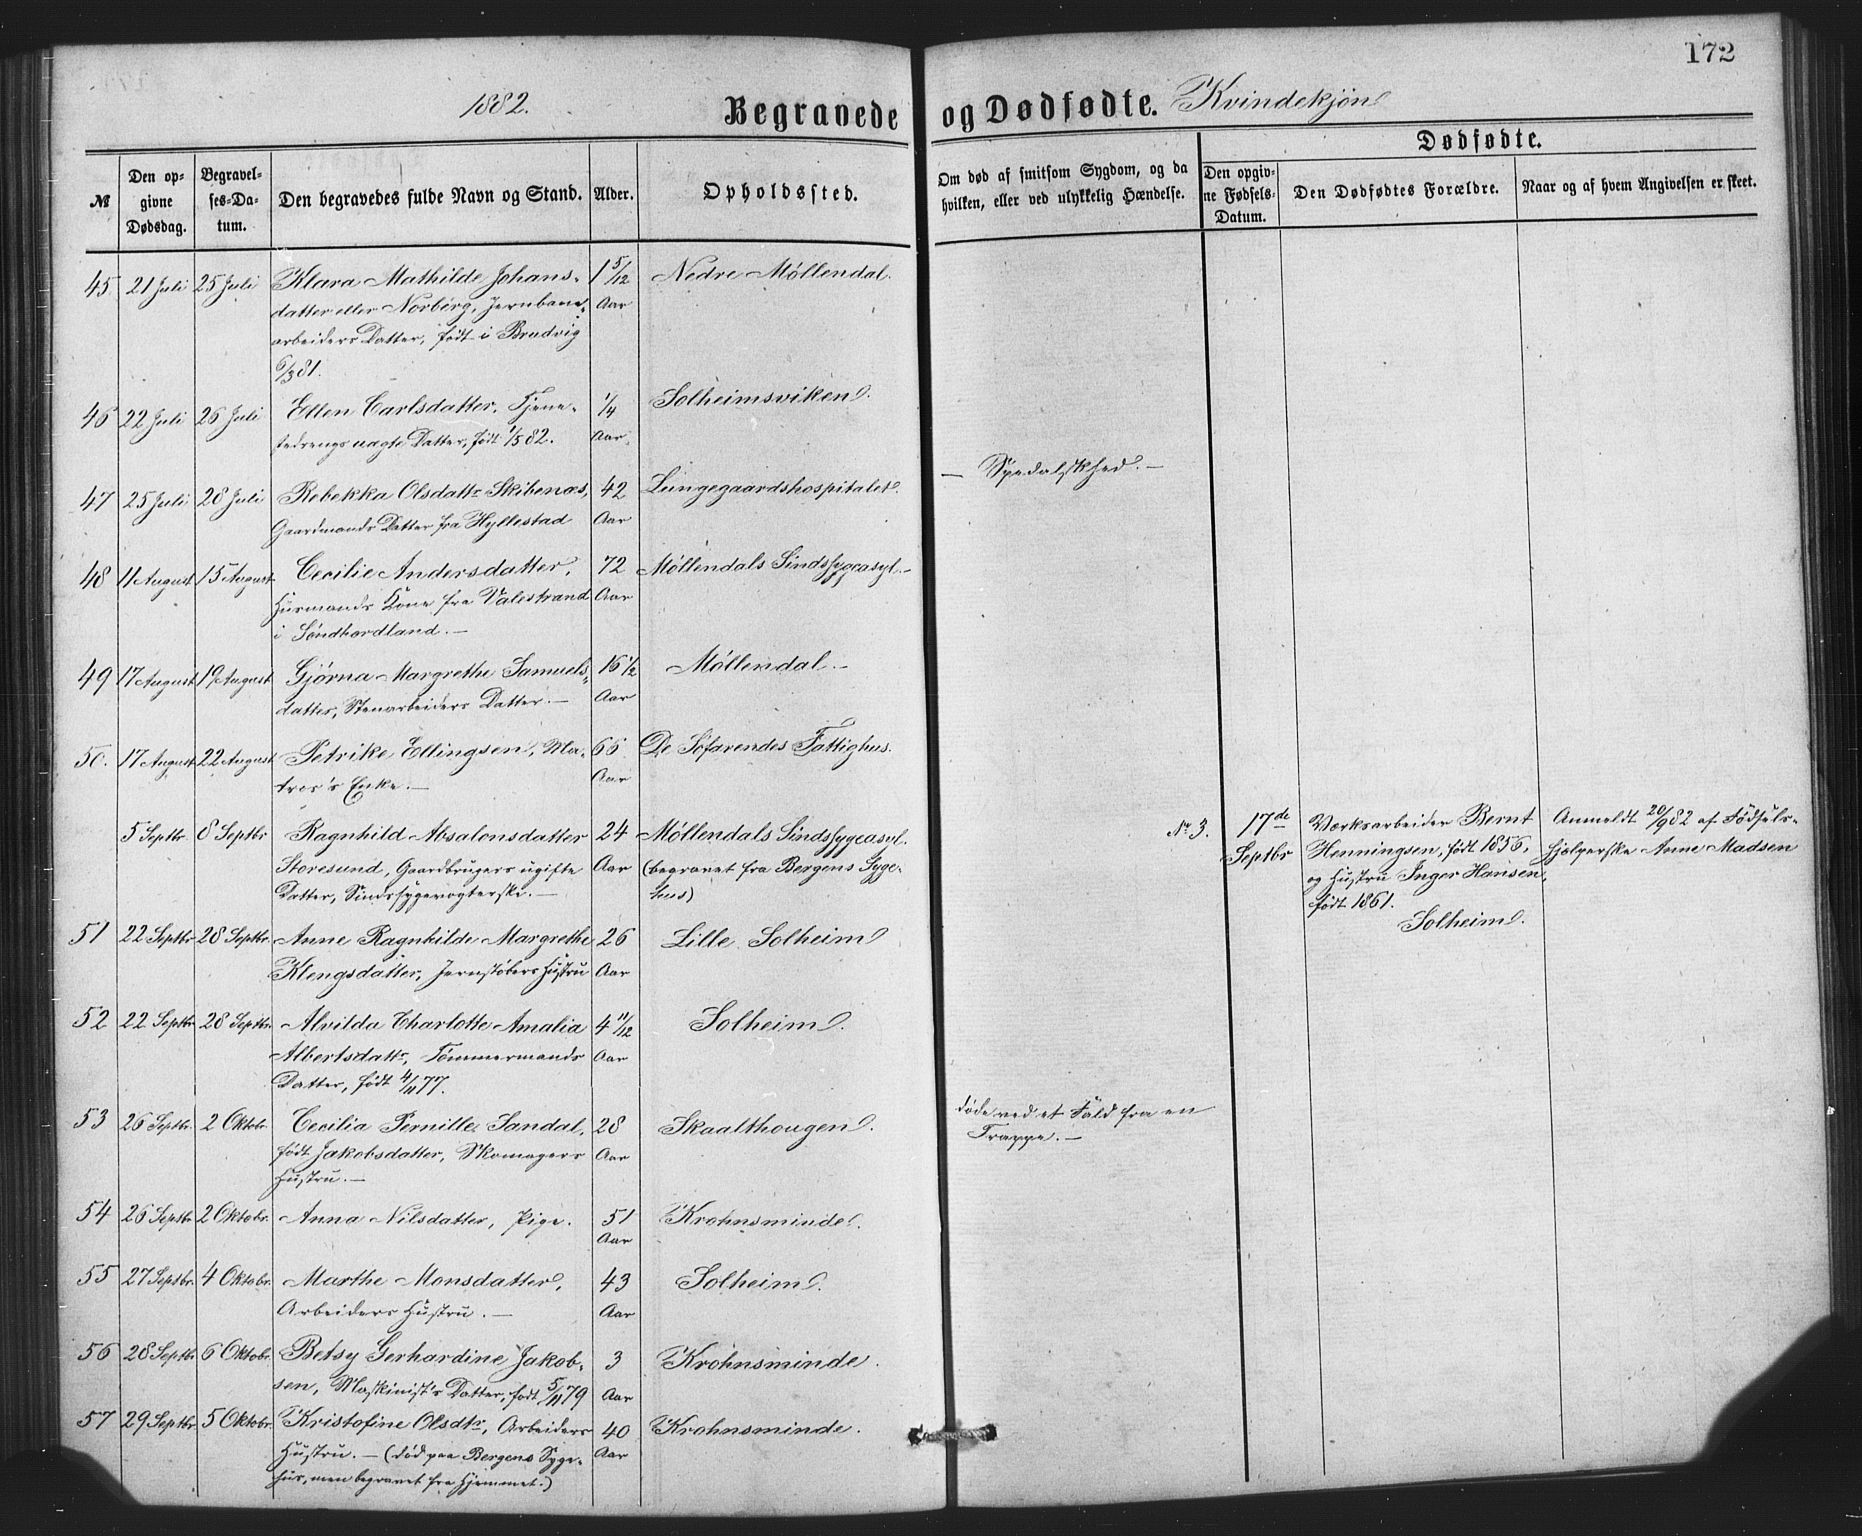 172
1882. Begravede og Dødfødte. Kvindekjøn
№
Den opgivne Dødsdag.
Begravelses-Datum.
Den begravedes fulde Navn og Stand.
Alder.
Opholdssted.
Om død af smitsom Sygdom, og da
hvilken, eller ved ulykkelig Hændelse.
Dødfødte.
Den opgivne Fødsels-Datum.
Den Dødfødtes Forældre.
Naar og af hvem Angivelsen er skeet.
45 21 Juli 25 Juli Klara Mathilde Johans- 1 5/12 Nedre Møllendal.
datter eller Norberg, Jernbane- Aar
arbeiders Datter, født i Bradvig
6/3 81.
46 22 Juli 26 Juli Ellen Carlsdatter, Tjene- 1/4 Solheimsviken.
stedrengs uægte Datter, født 1/5 82. Aar.
47 25 Juli 28 Juli Rebekka Olsdattr Skibenæs, 42 Lungegaardshospitalet. — Spedalskhed. —
Gaardmands Datter fra Hyllestad Aar
48 11 August 15 August Cecilie Andersdatter, 72 Møllendals Sindssygeasyl. —
Husmands Kone fra Valestrand Aar
i Søndhordland. —
49 17 August 19 August Gjørna Margrethe Samuels- 16 1/2 Møllendal —
datter, Stenarbeiders Datter. — Aar
50. 17 August 22 August Petrike Ellingsen, Ma- 66 De Søfarendes Fattighus.
tros's Enke. — Aar
5 Septbr 8 Septbr Ragnhild Absalonsdatter 24 Møllendals Sindssygeasyl.
Storesund, Gaardbrugers ugifte Aar (begravet fra Bergens Syge-
Datter, Sindssygevogterske. — hus)
No 3. 17de Værksarbeider Bernt Anmeldt 20/9 82 af Fødsels-
Septbr Henningsen, født 1856, hjelperske Anne Madsen
og Hustru Inger Hansen,
født 1861.
Solheim.
51 22 Septbr 28 Septbr. Anne Ragnhilde Margrethe 26 Lille Solheim
Klengsdatter, Jernstøbers Hustru Aar
52 22 Septbr 28 Septbr. Alvilda Charlotte Amalia 4 11/12 Solheim.
Albertsdattr, Tømmermands Aar
Datter, født 4/11 77.
53 26 Septbr. 2 Oktobr Cecilia Pernille Sandal, 28 Skaalthougen. døde ved et Fald fra en
født Jakobsdatter, Skomagers Aar Trappe. —
Hustru. —
54 26 Septbr 2 Oktobr. Anna Nilsdatter, Pige. 51 Krohnsminde.
Aar
55 27 Septbr. 4 Oktobr. Marthe Monsdatter, 43 Solheim.
Arbeiders Hustru. — Aar
56 28 Septbr 6 Oktobr. Betsy Gerhardine Jakob- 3 Krohnsminde.
sen, Maskinist's Datter, født 5/11 79 Aar
57 29 Septbr 5 Oktobr. Kristofine Olsdtr, Arbeiders 40 Krohnsminde.
Hustru. — (død paa Bergens Syge- Aar
hus, men begravet fra Hjemmet.)